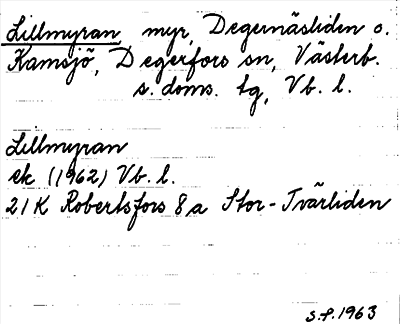 Lillmyran, myr, Degernäsliden o.
Kamsjö, Degerfors sn, Västerb.
s. doms. tg, Vb. l.
Lillmyran
ek (1962) Vb. l.
21K Robertsfors 8a Stor-Tvärliden
S.P. 1963